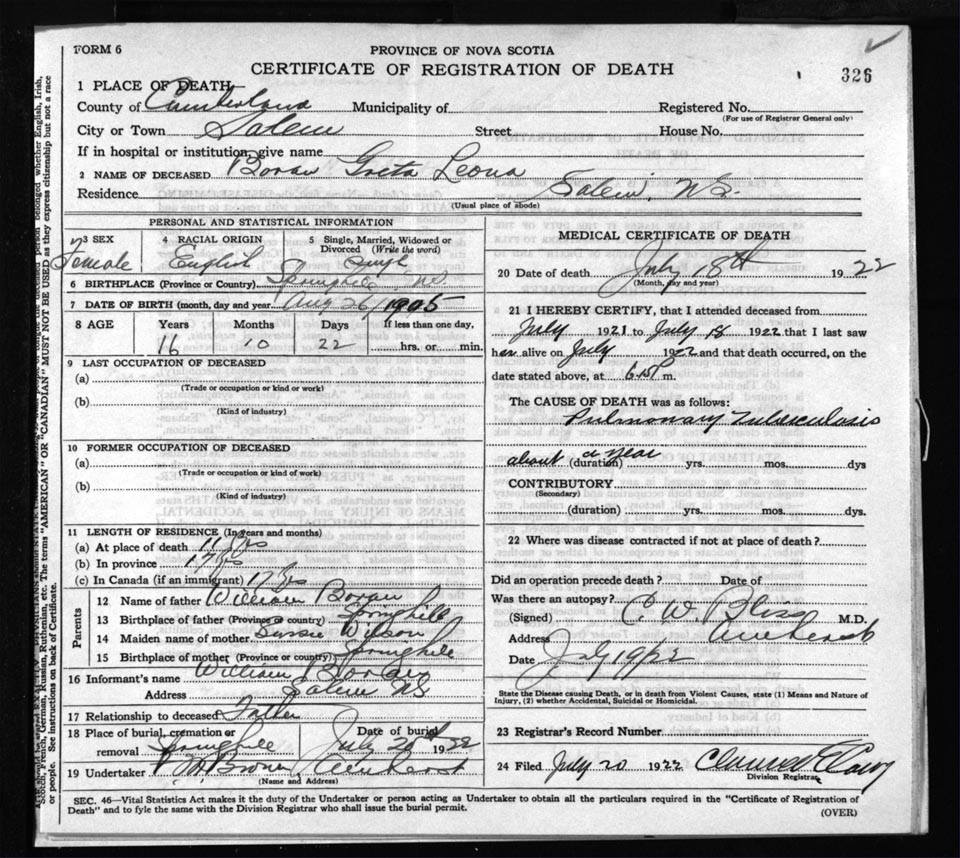 FORM 6
PROVINCE OF NOVA SCOTIA
CERTIFICATE OF REGISTRATION OF DEATH
326
1 PLACE OF DEATH
County of Cumberland Municipality of Registered No.
(For use of Registrar General only)
City or Town Salem Street House No.
If in hospital or institution, give name
2 NAME OF DECEASED Boran Greta Leona
Residence Salem, N.S.
(Usual place of abode)
PERSONAL AND STATISTICAL INFORMATION
3 SEX 4 RACIAL ORIGIN 5 Single, Married, Widowed or Divorced (Write the word)
Female English Single
6 BIRTHPLACE (Province or Country) Springhill, N.S.
7 DATE OF BIRTH (month, day and year) Aug 26/1905
8 AGE Years Months Days If less than one day,
16 10 22 hrs. or min.
9 LAST OCCUPATION OF DECEASED
(a)
(Trade or occupation or kind of work)
(b)
(Kind of industry)
10 FORMER OCCUPATION OF DECEASED
(a)
(Trade or occupation or kind of work)
(b)
(Kind of industry)
11 LENGTH OF RESIDENCE (In years and months)
(a) At place of death 11 yrs
(b) In province 17 yrs
(c) In Canada (if an immigrant) 17 yrs
Parents
12 Name of father William Boran
13 Birthplace of father (Province or country) Springhill
14 Maiden name of mother Wilson
15 Birthplace of mother (Province or country) Springhill
16 Informant's name William Boran
Address Salem NS
17 Relationship to deceased Father
18 Place of burial, cremation or removal Springhill Date of burial July 1922
19 Undertaker Brown Amherst
(Name and Address)
MEDICAL CERTIFICATE OF DEATH
20 Date of death July 18th 1922
(Month, day and year)
21 I HEREBY CERTIFY, that I attended deceased from
July 1921 to July 18 1922 that I last saw
her alive on July 1922 and that death occurred, on the
date stated above, at m.
The CAUSE OF DEATH was as follows:
Pulmonary Tuberculosis
about a year (duration) yrs. mos. dys
CONTRIBUTORY
(Secondary)
(duration) yrs. mos. dys.
22 Where was disease contracted if not at place of death?
Did an operation precede death? Date of
Was there an autopsy?
(Signed) C. W. Bliss M.D.
Address Amherst
Date July 19/22
State the Disease causing Death, or in death from Violent Causes, state (1) Means and Nature of
Injury, (2) whether Accidental, Suicidal or Homicidal.
23 Registrar's Record Number
24 Filed July 20 1922
Division Registrar
SEC. 46—Vital Statistics Act makes it the duty of the Undertaker or person acting as Undertaker to obtain all the particulars required in the "Certificate of Registration of
Death" and to fyle the same with the Division Registrar who shall issue the burial permit.
(OVER)